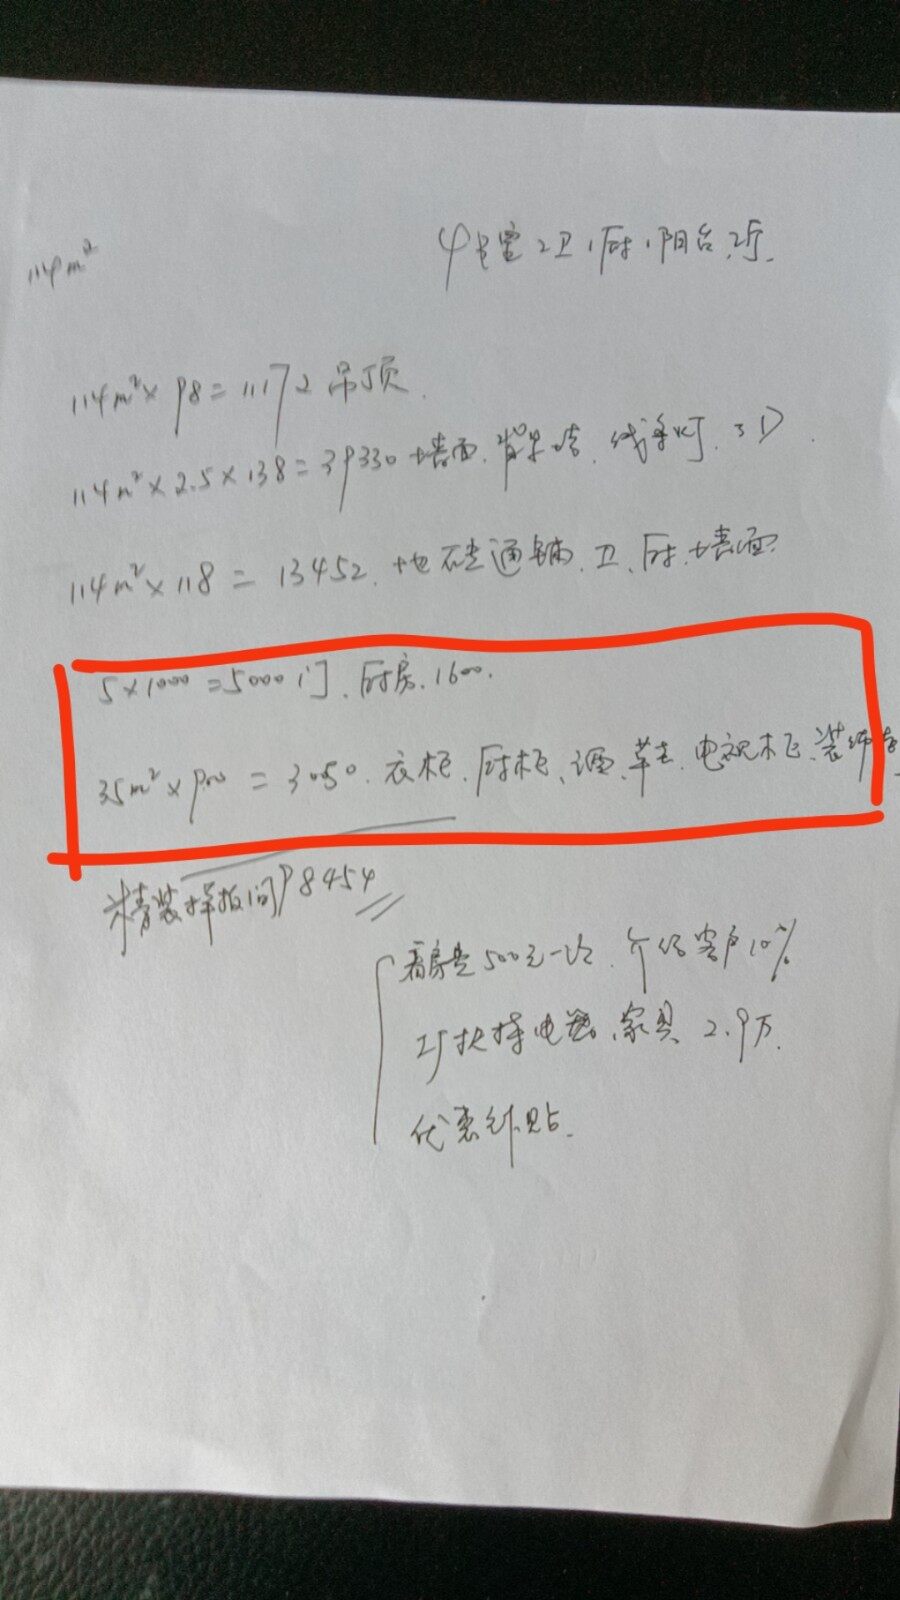 114m²
4卧室2卫1厨1阳台2厅
114m²×98=11172 吊顶
114m²×2.5×138=39330 墙面、背景墙、线条灯、3D
114m²×118=13452、地砖通铺、卫、厨、墙面
5×1000=5000门、厨房、1600.
35m²×900=3050.衣柜、厨柜、酒、电视柜、装饰
精装样板间98454
看房 500元一次、介绍客户10%
扶持电器、家具 2.9万
优惠补贴